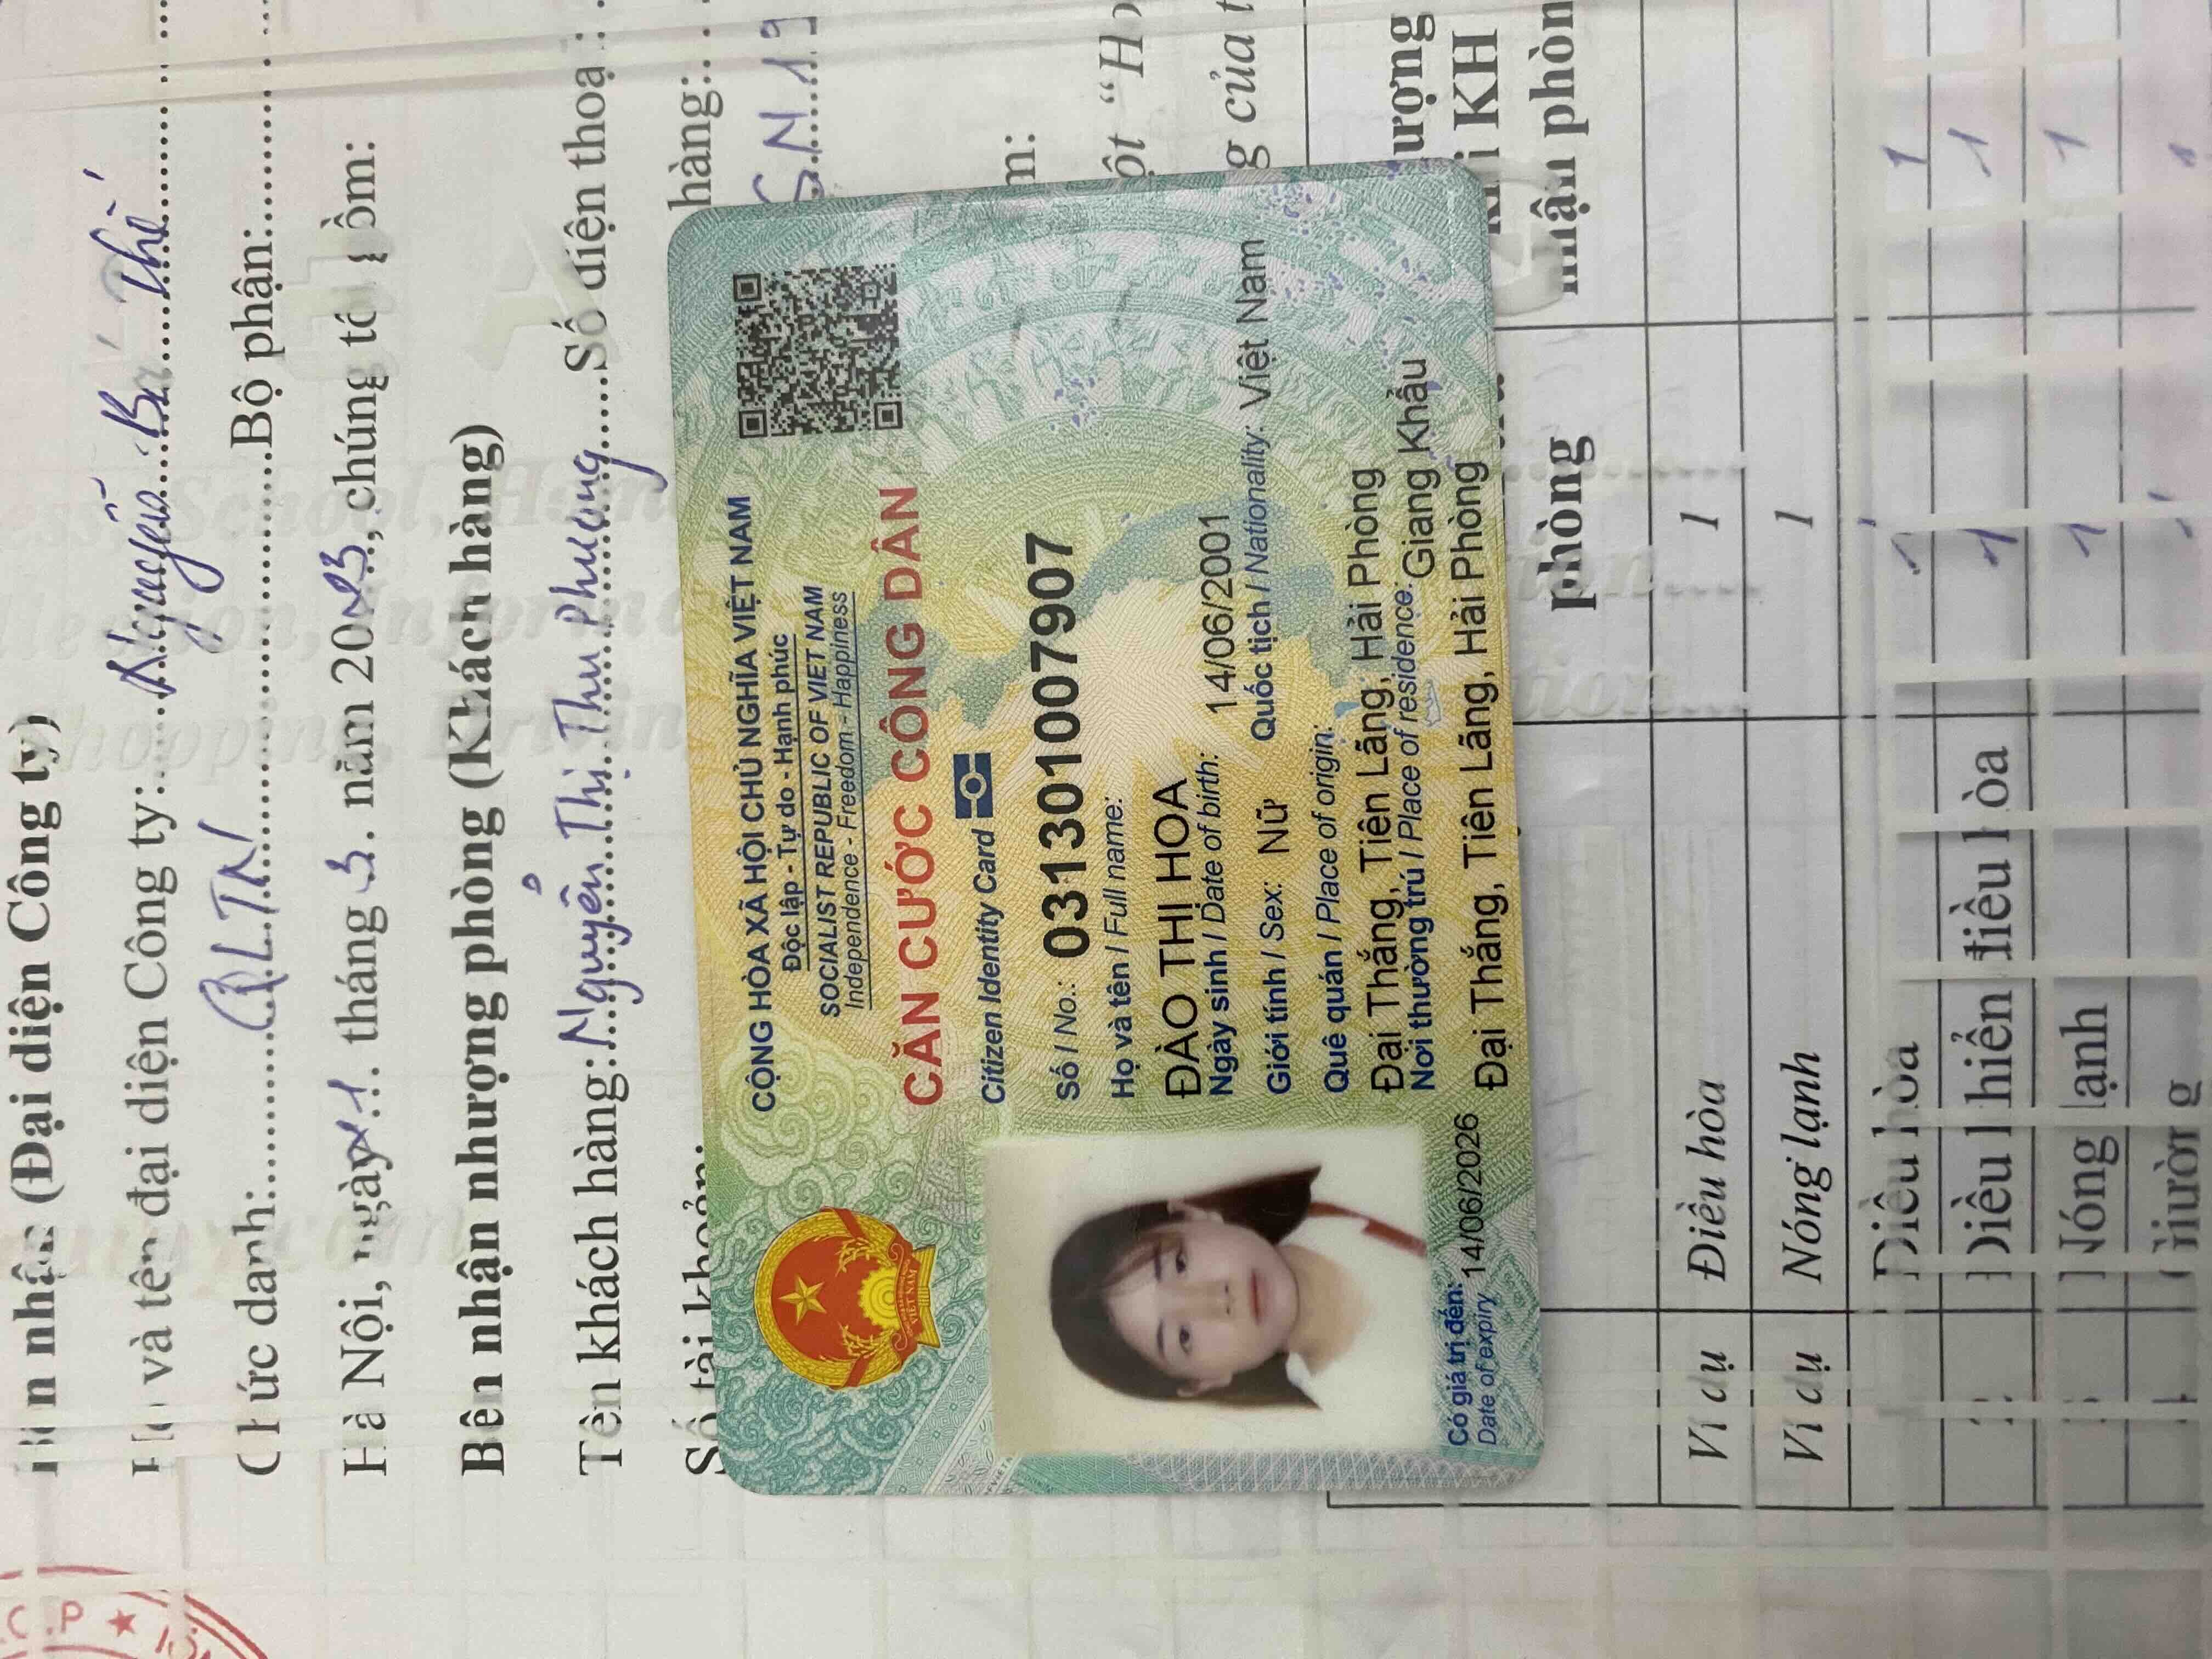 (Đại diện Công ty)
và tên đại diện Công ty:.....Nguyễn Bá Thế
Chức danh:......QLTN......Bộ phận:......
Hà Nội, ngày 1 tháng 3 năm 2023, chúng tôi gồm:
Bên nhận nhượng phòng (Khách hàng)
Tên khách hàng:Nguyễn Thị Thu Phương.....Số điện thoại:
Số tài khoản: hàng:
CỘNG HÒA XÃ HỘI CHỦ NGHĨA VIỆT NAM
Độc lập - Tự do - Hạnh phúc
SOCIALIST REPUBLIC OF VIET NAM
Independence - Freedom - Happiness
CĂN CƯỚC CÔNG DÂN
Citizen Identity Card
Số / No.: 031301007907
Họ và tên / Full name:
ĐÀO THỊ HOA
Ngày sinh / Date of birth: 14/06/2001
Giới tính / Sex: Nữ Quốc tịch / Nationality: Việt Nam
Quê quán / Place of origin:
Đại Thắng, Tiên Lãng, Hải Phòng
Nơi thường trú / Place of residence: Giang Khẩu
Đại Thắng, Tiên Lãng, Hải Phòng
Có giá trị đến: 14/06/2026
Date of expiry
của
KH
phòng nhận phòng
Ví dụ Điều hòa 1
Ví dụ Nóng lạnh 1
Điều hòa 1 1
Điều khiển điều hòa 1 1
Nóng lạnh 1 1
Giường 1 1